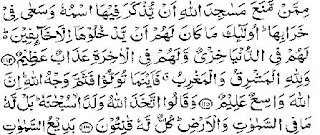 مِمَّنْ مَّنَعَ مَسٰجِدَ اللّٰهِ اَنْ يُّذْكَرَ فِيْهَا اسْمُهٗ وَسَعٰى فِىْ
خَرَابِهَا ؕ اُولٰٓئِكَ مَا كَانَ لَهُمْ اَنْ يَّدْخُلُوْهَاۤ اِلَّا خَآئِفِيْنَ ؕ
لَهُمْ فِى الدُّنْيَا خِزْىٌ وَّلَهُمْ فِى الْاٰخِرَةِ عَذَابٌ عَظِيْمٌ ﴿۱۱۴﴾
وَلِلّٰهِ الْمَشْرِقُ وَالْمَغْرِبُ ۗ فَاَيْنَمَا تُوَلُّوْا فَثَمَّ وَجْهُ اللّٰهِ ؕ اِنَّ
اللّٰهَ وَاسِعٌ عَلِيْمٌ ﴿۱۱۵﴾ وَقَالُوا اتَّخَذَ اللّٰهُ وَلَدًا ۙ سُبْحٰنَهٗ ؕ بَلْ لَّهٗ
مَا فِى السَّمٰوٰتِ وَالْاَرْضِ ؕ كُلٌّ لَّهٗ قٰنِتُوْنَ ﴿۱۱۶﴾ بَدِيْعُ السَّمٰوٰتِ